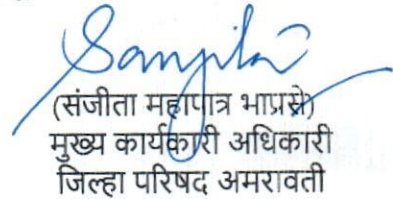 Sanjita
(संजीता महापात्र भाप्रसे)
मुख्य कार्यकारी अधिकारी
जिल्हा परिषद अमरावती